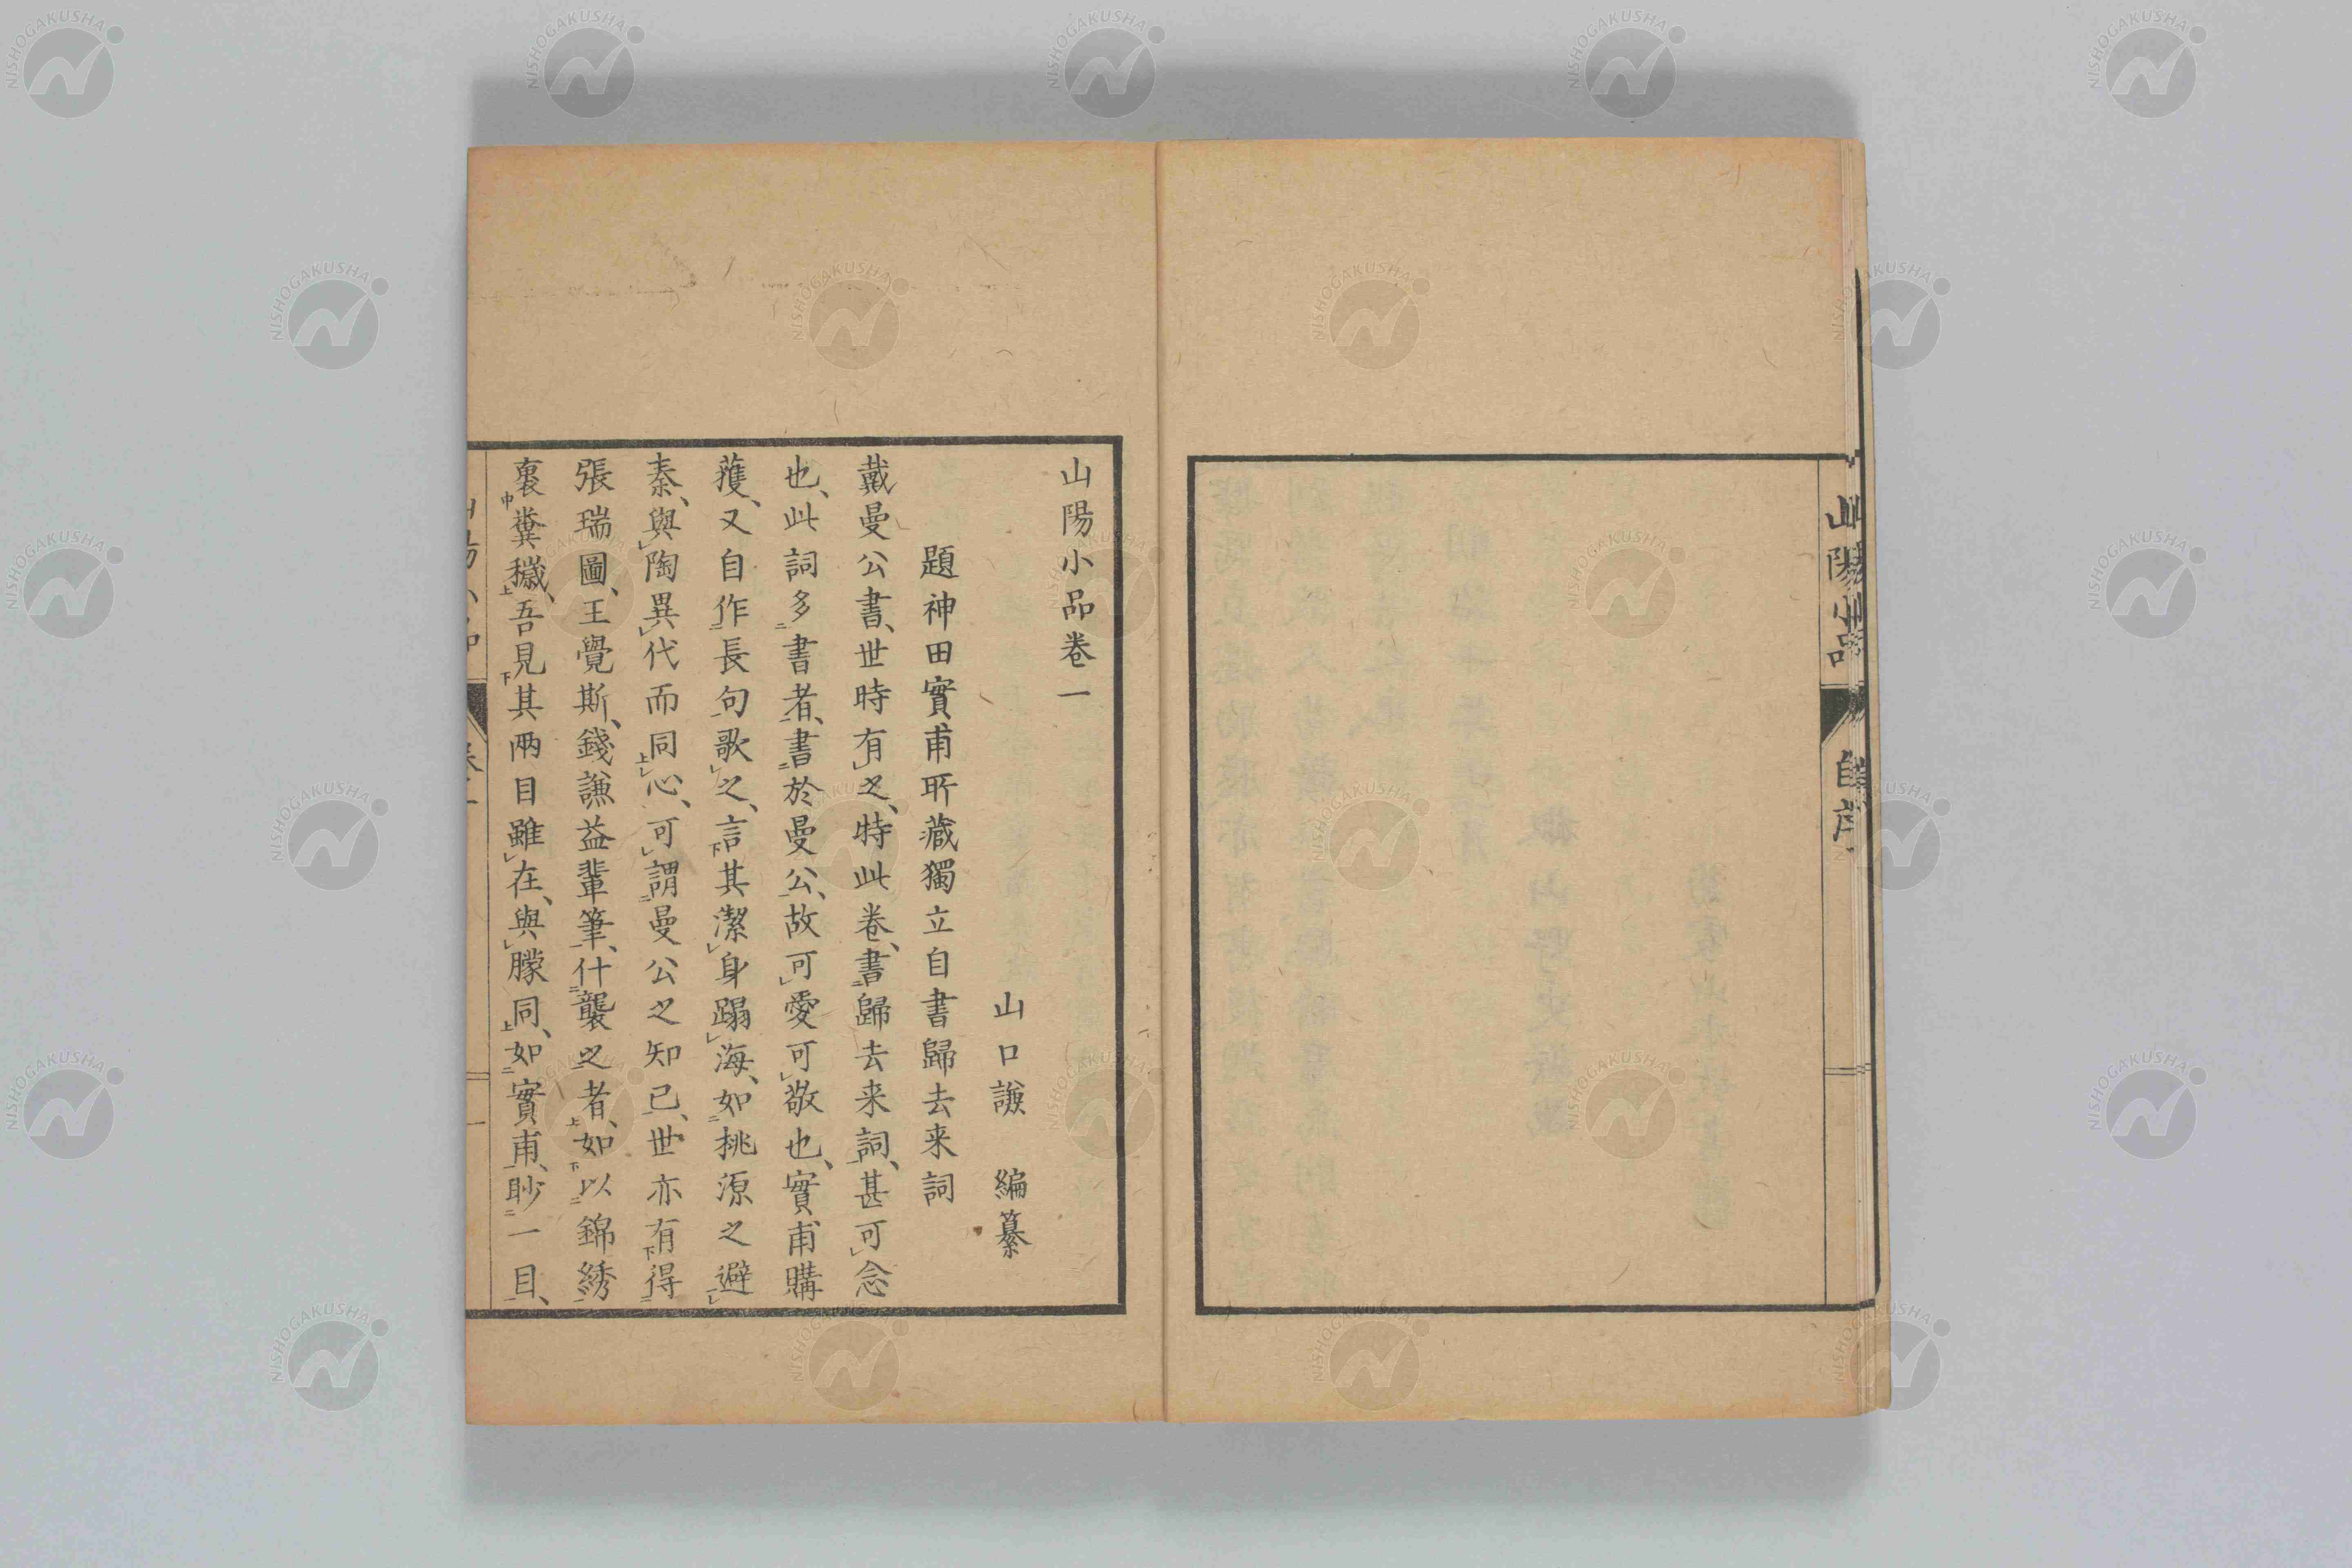 山陽小品
自序
山陽小品卷一
山口謙　編纂
題神田實甫所藏獨立自書歸去来詞
戴曼公書、世時有之、特此卷、書歸去来詞、甚可念
也、此詞多書者、書於曼公、故可愛可敬也、實甫購
獲、又自作長句歌之、言其潔身蹋海、如桃源之避
秦、與陶異代而同心、可謂曼公之知已、世亦有得
張瑞圖、王覺斯、錢謙益輩筆、什襲之者、如以錦綉
裹糞穢、吾見其兩目雖在、與朦同、如實甫、眇一目、
NISHOGAKUSHA